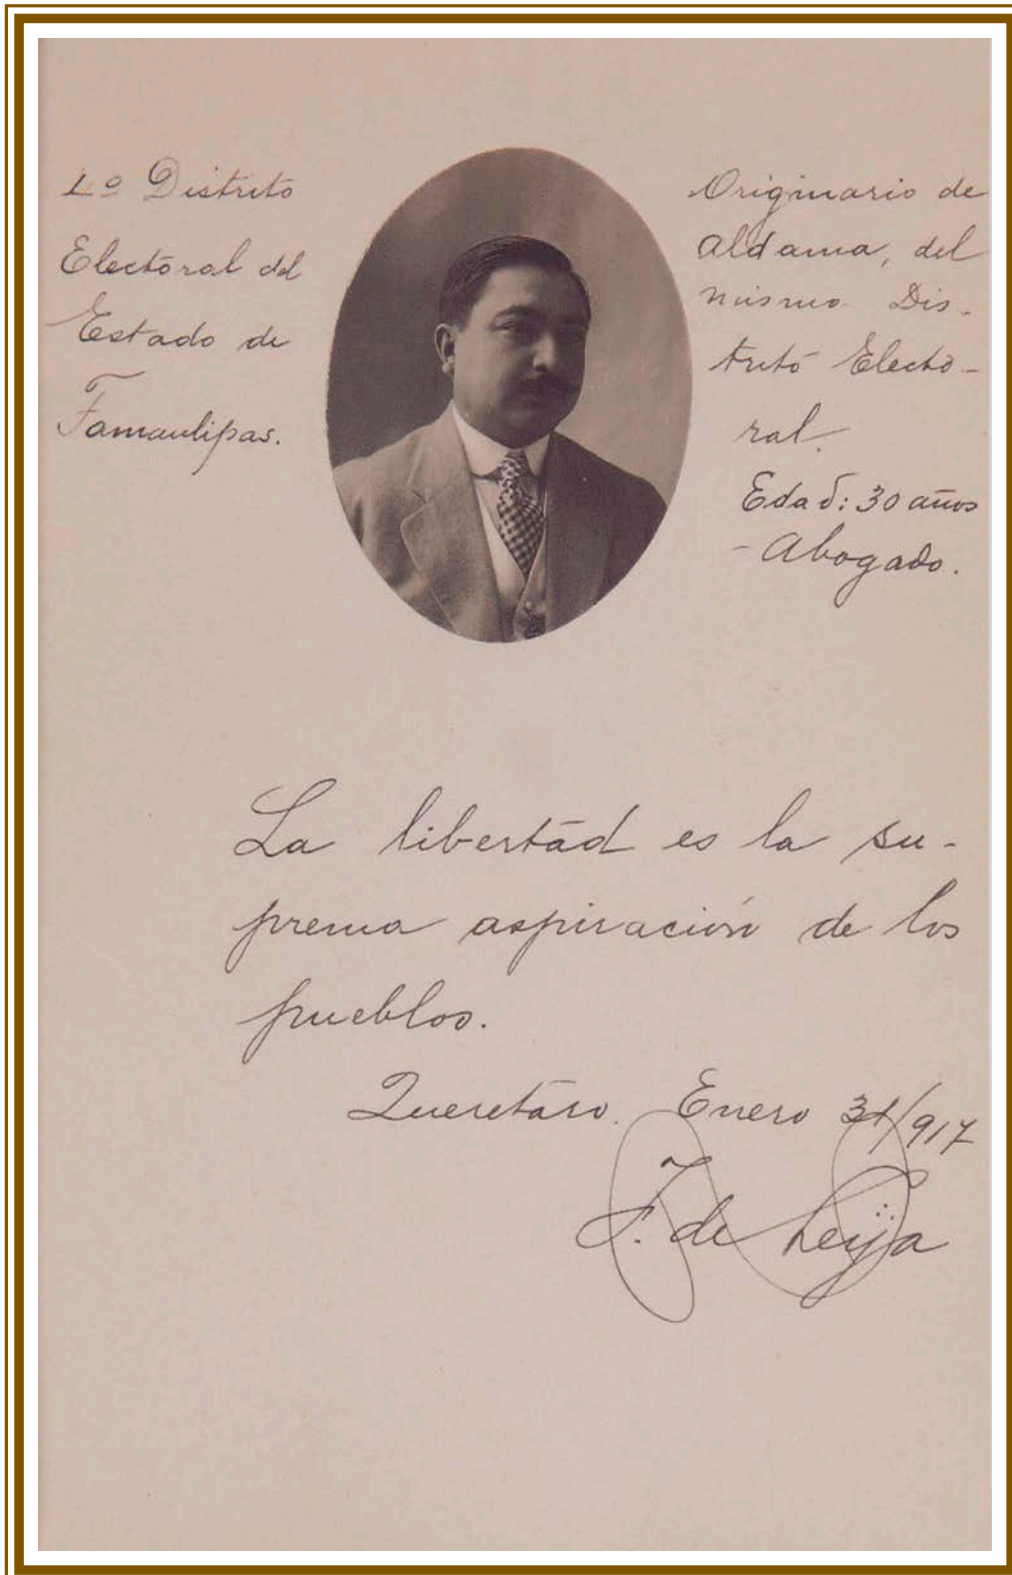 1º Distrito
Electoral del
Estado de
Tamaulipas.
Originario de
Aldama, del
mismo Dis-
trito Electo-
ral.
Edad: 30 años
- Abogado.
La libertad es la su-
prema aspiración de los
pueblos.
Queretáro. Enero 31/917
F. de Leija